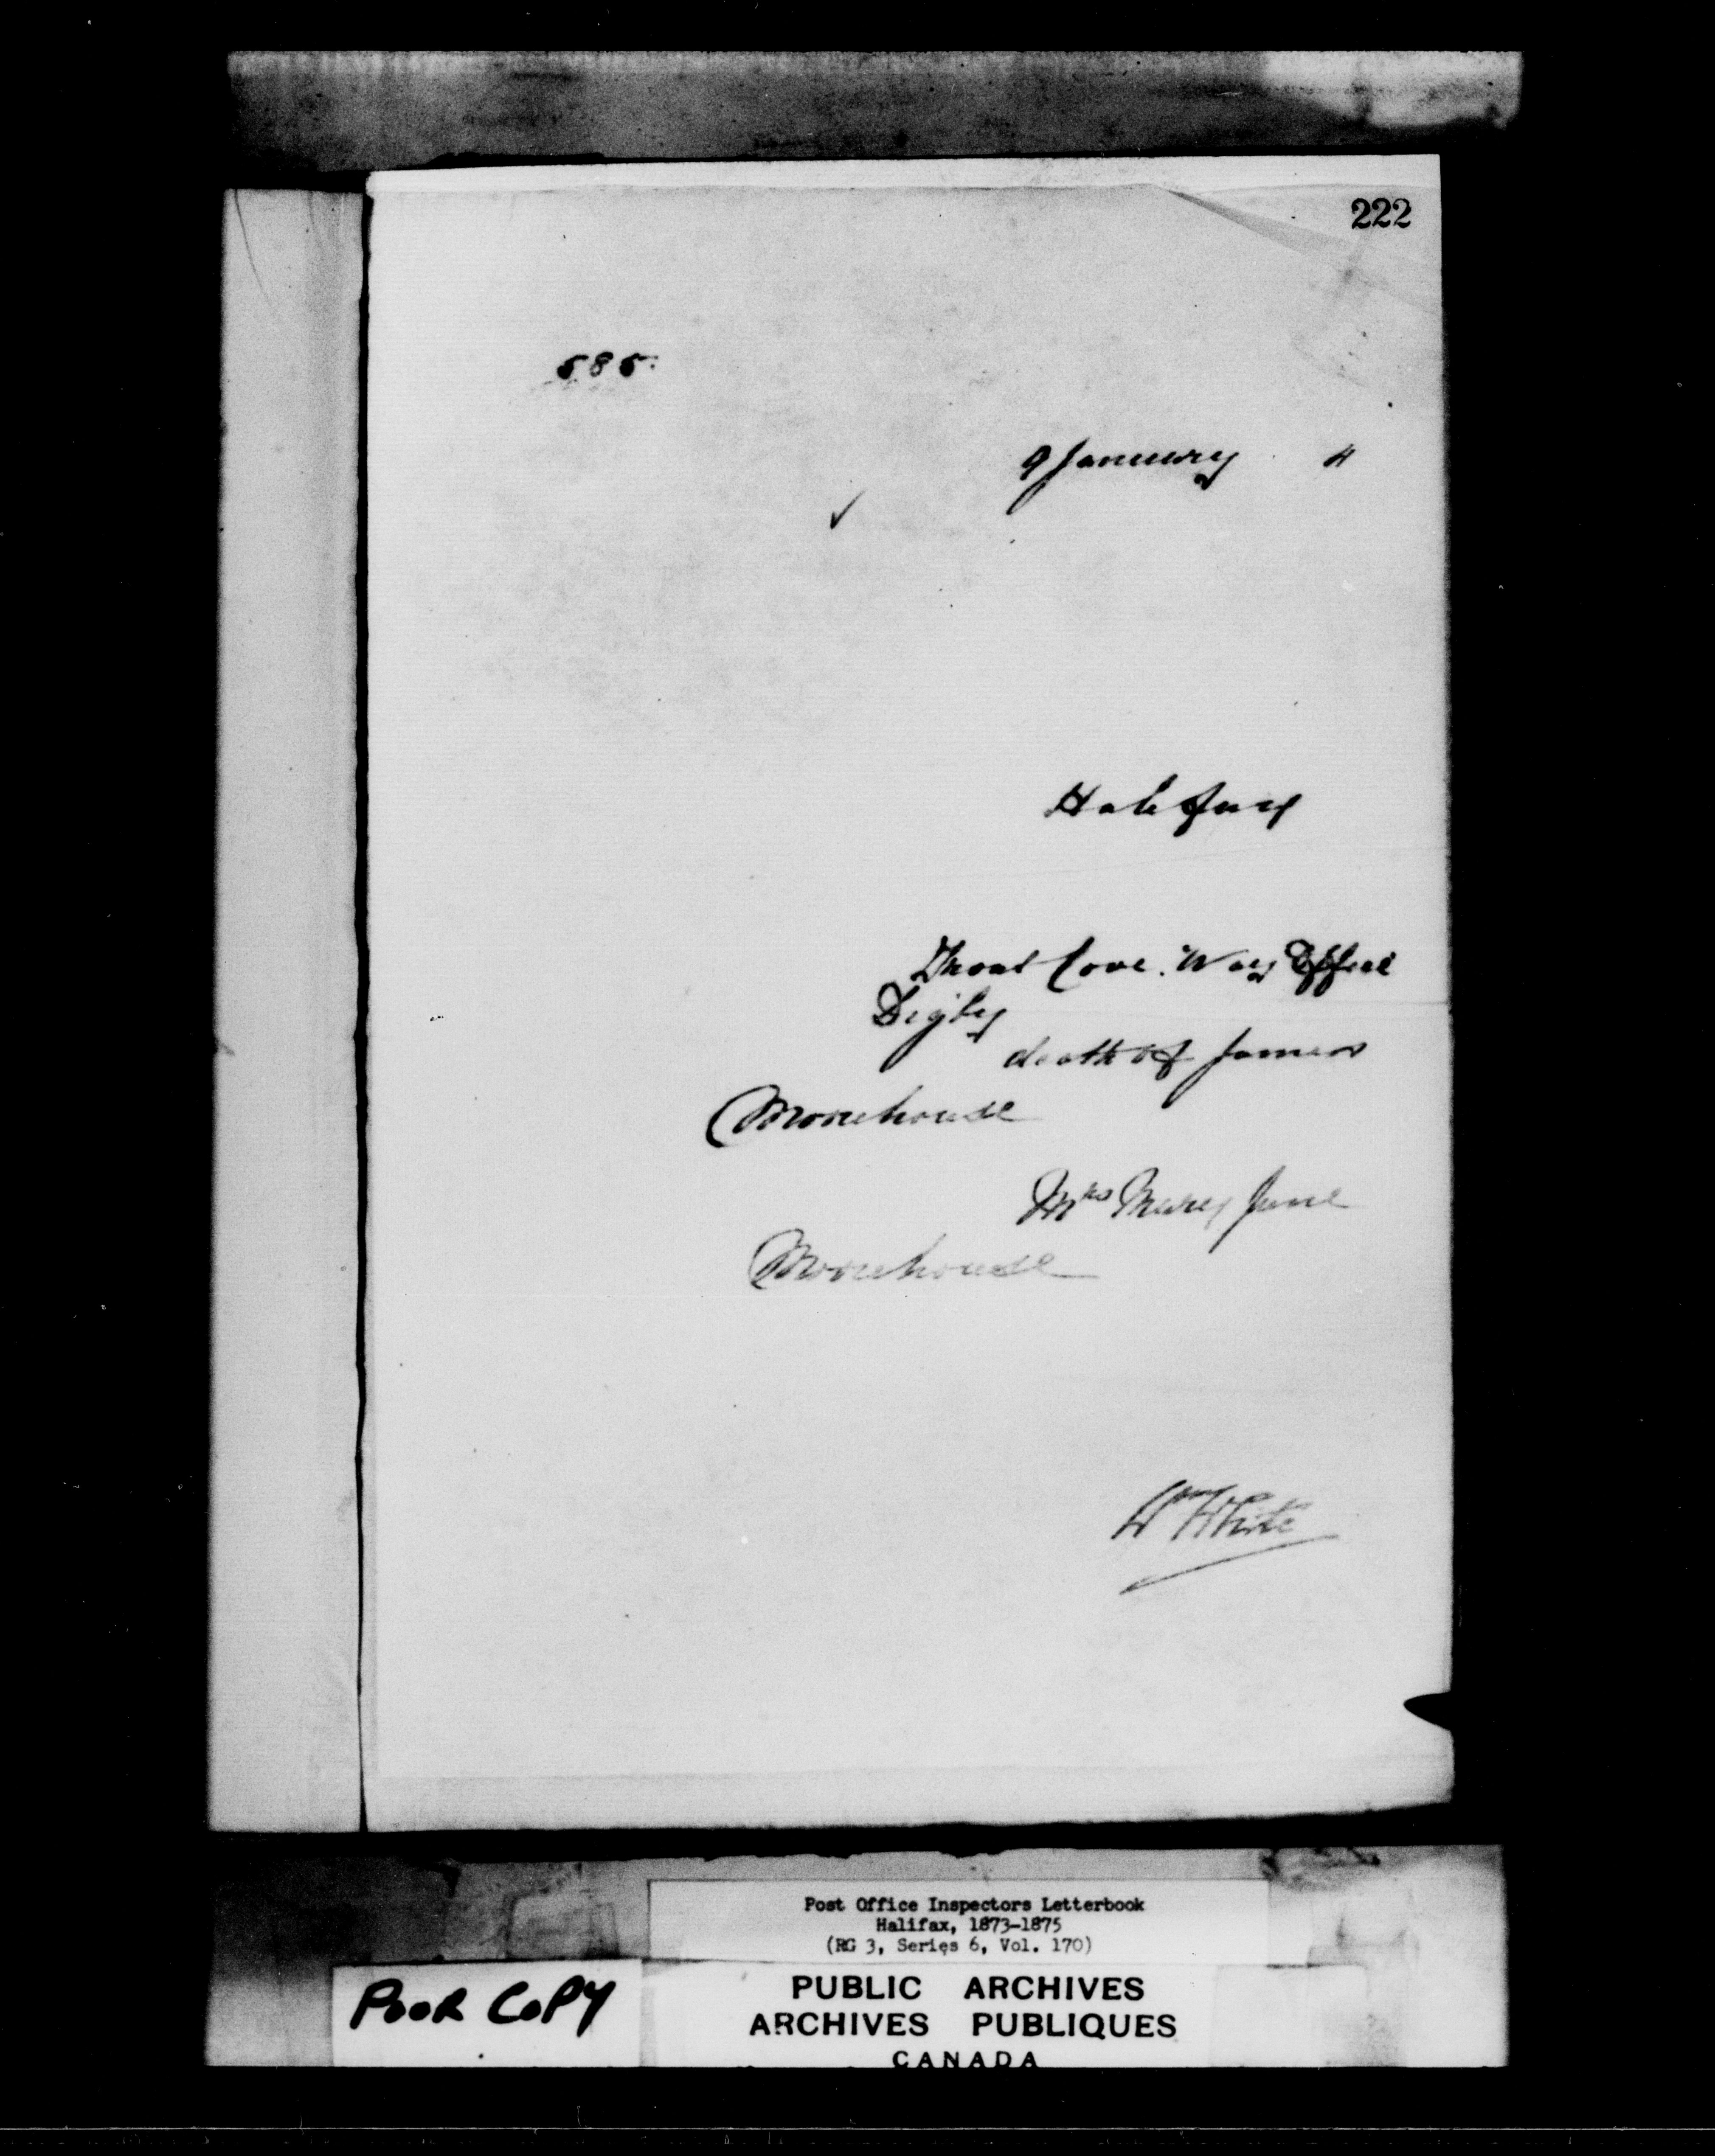 222
585.
9 January 4
✓
Halifax
Trout Cove. Way Office
Digby
death of James
Morehouse
Mrs Mary Jane
Morehouse
W White
Post Office Inspectors Letterbook
Halifax, 1873-1875
(RG 3, Series 6, Vol. 170)
POOR COPY
PUBLIC ARCHIVES
ARCHIVES PUBLIQUES
CANADA